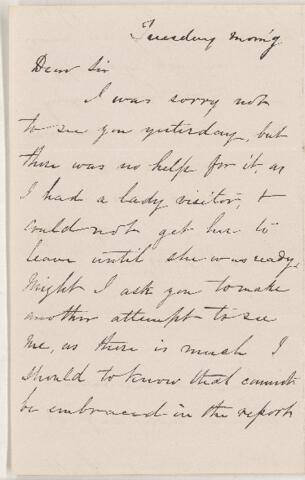 Tuesday morn'g
Dear Sir
I was sorry not
to see you yesterday, but
there was no help for it, as
I had a lady visitor, &
could not get her to
leave until she was ready.
Might I ask you to make
another attempt to see
me, as there is much I
should to know that cannot
be embraced in the report